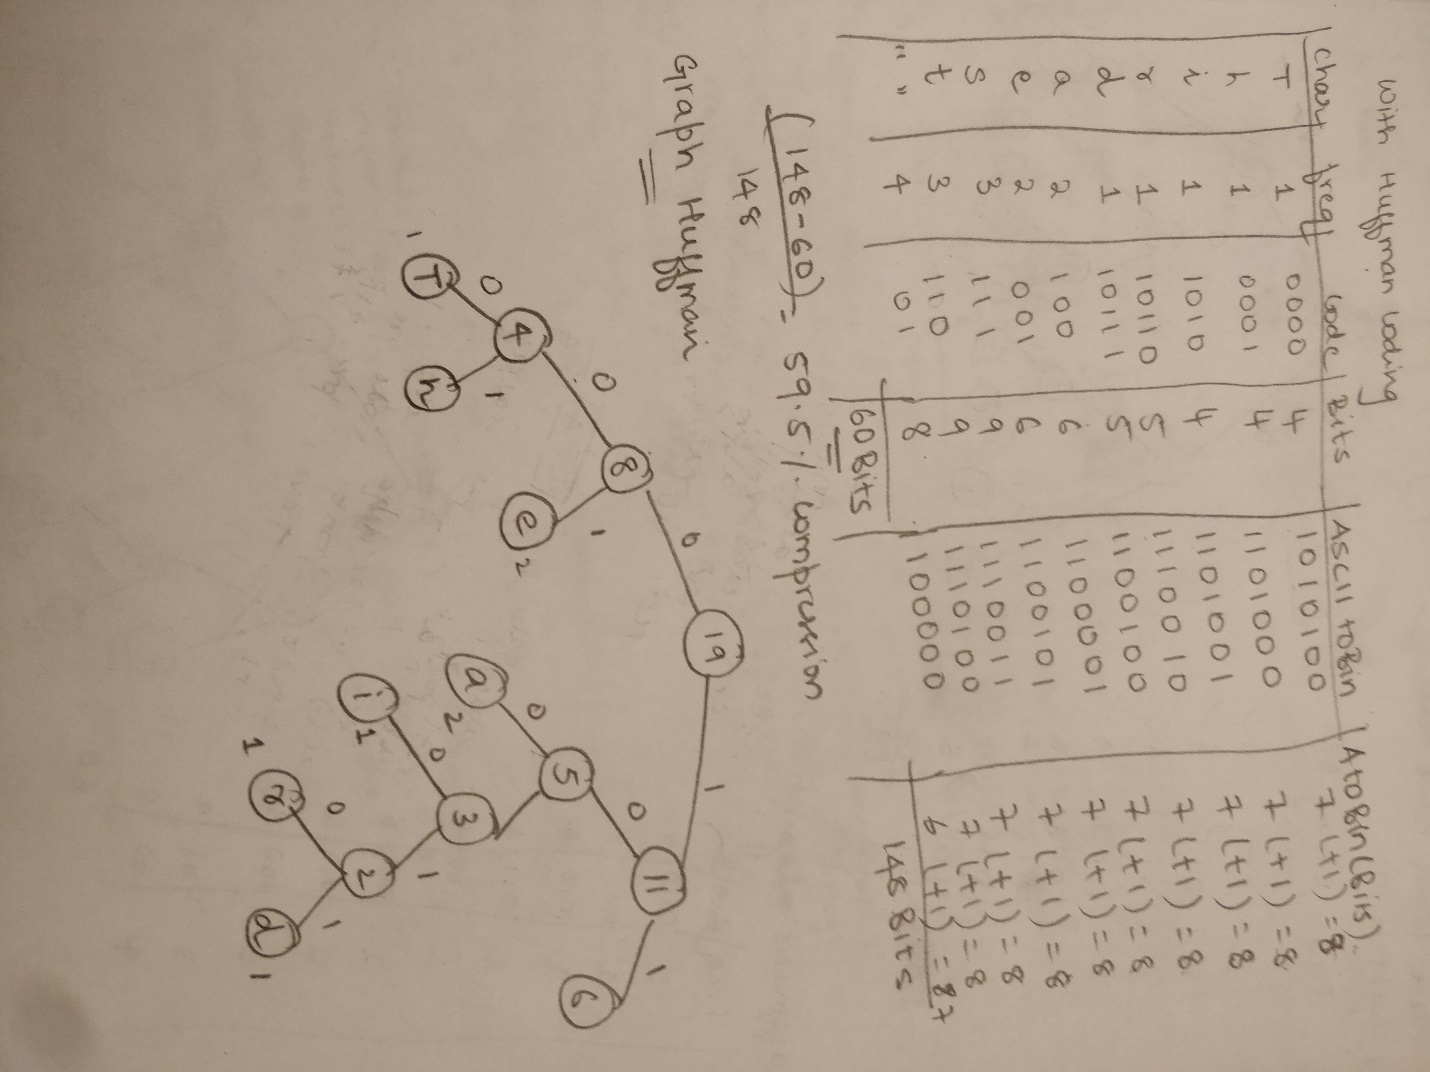 With Huffman Coding
Char | freq | Code | Bits | ASCII to Bin | A to Bin (Bits)
T 1 0000 4 1010100 7 (+1) = 8
h 1 0001 4 1101000 7 (+1) = 8
i 1 1010 4 1101001 7 (+1) = 8
r 1 10110 5 1110010 7 (+1) = 8
d 1 10111 5 1100100 7 (+1) = 8
a 2 100 6 1100001 7 (+1) = 8
e 2 001 6 1100101 7 (+1) = 8
s 3 111 9 1110011 7 (+1) = 8
t 3 110 9 1110100 7 (+1) = 8
" " 4 01 8 100000 6 (+1) = 87
60 Bits 148 Bits
(148-60) = 59.5% compression
148
Graph Huffman
19
0 1
8 11
0 1 0 1
4 e 2 5 6
0 1 0
1 T h a 2 3
0 1
i 1 2
0 1
1 r d 1